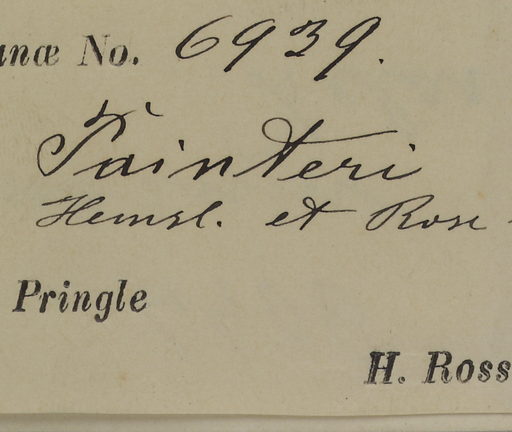 anæ No. 6939.
Painteri
Hemsl. et Rose
Pringle
H. Ross